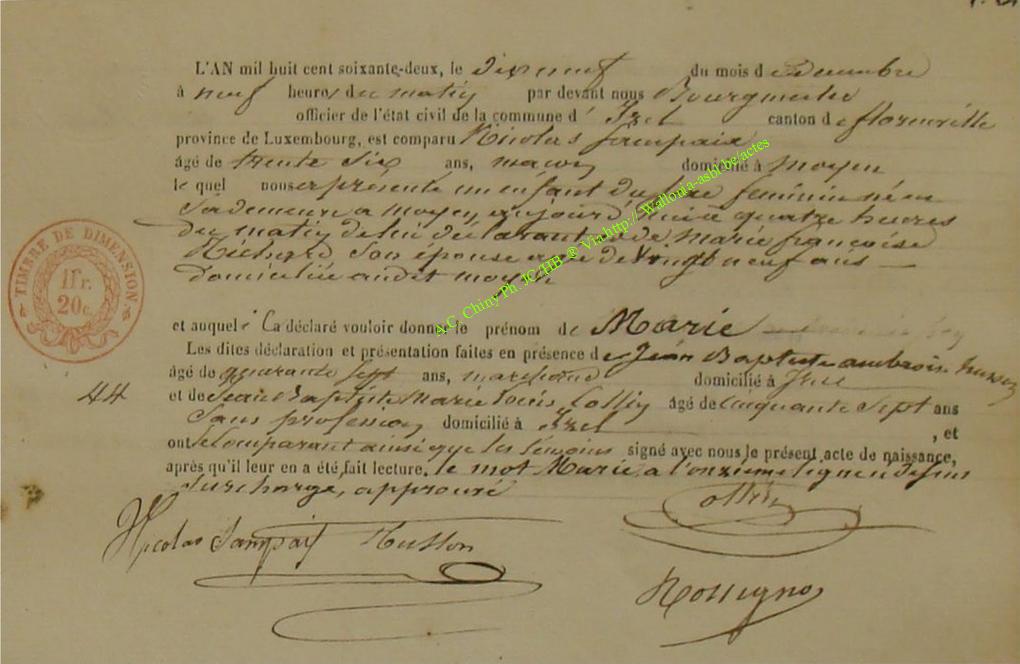 L'AN mil huit cent soixante-deux, le dix neuf du mois de Decembre
à neuf heures du matin par devant nous Bourgmestre
officier de l'état civil de la commune d'Izel canton de florenville
province de Luxembourg, est comparu Nicolas
âgé de trente six ans, maçon domicilié à moyen
le quel nous a présenté un enfant du sexe feminin né en
sa demeure a moyen, aujourd'hui a quatre heures
du matin de lui déclarant et de marie françoise
Richard son épouse agée de vingt neuf ans
domiciliée audit moyen
TIMBRE DE DIMENSION
1fr.
20c.
A.C. Chiny Ph. JC HB ® Via http:// Wallonia-asbl.be/actes
et auquel il a déclaré vouloir donner le prénom de Marie
Les dites déclaration et présentation faites en présence de Jean Baptiste ambroise husson
âgé de quarante sept ans, domicilié à Izel
44
et de Jean Baptiste Marie Louis Collin âgé de cinquante sept ans
Sans profession domicilié à Izel , et
ont le comparant ainsi que les témoins signé avec nous le présent acte de naissance,
après qu'il leur en a été fait lecture. le mot Marie a l'onzieme ligne
surcharge, approuvé
Collin
Nicolas Husson